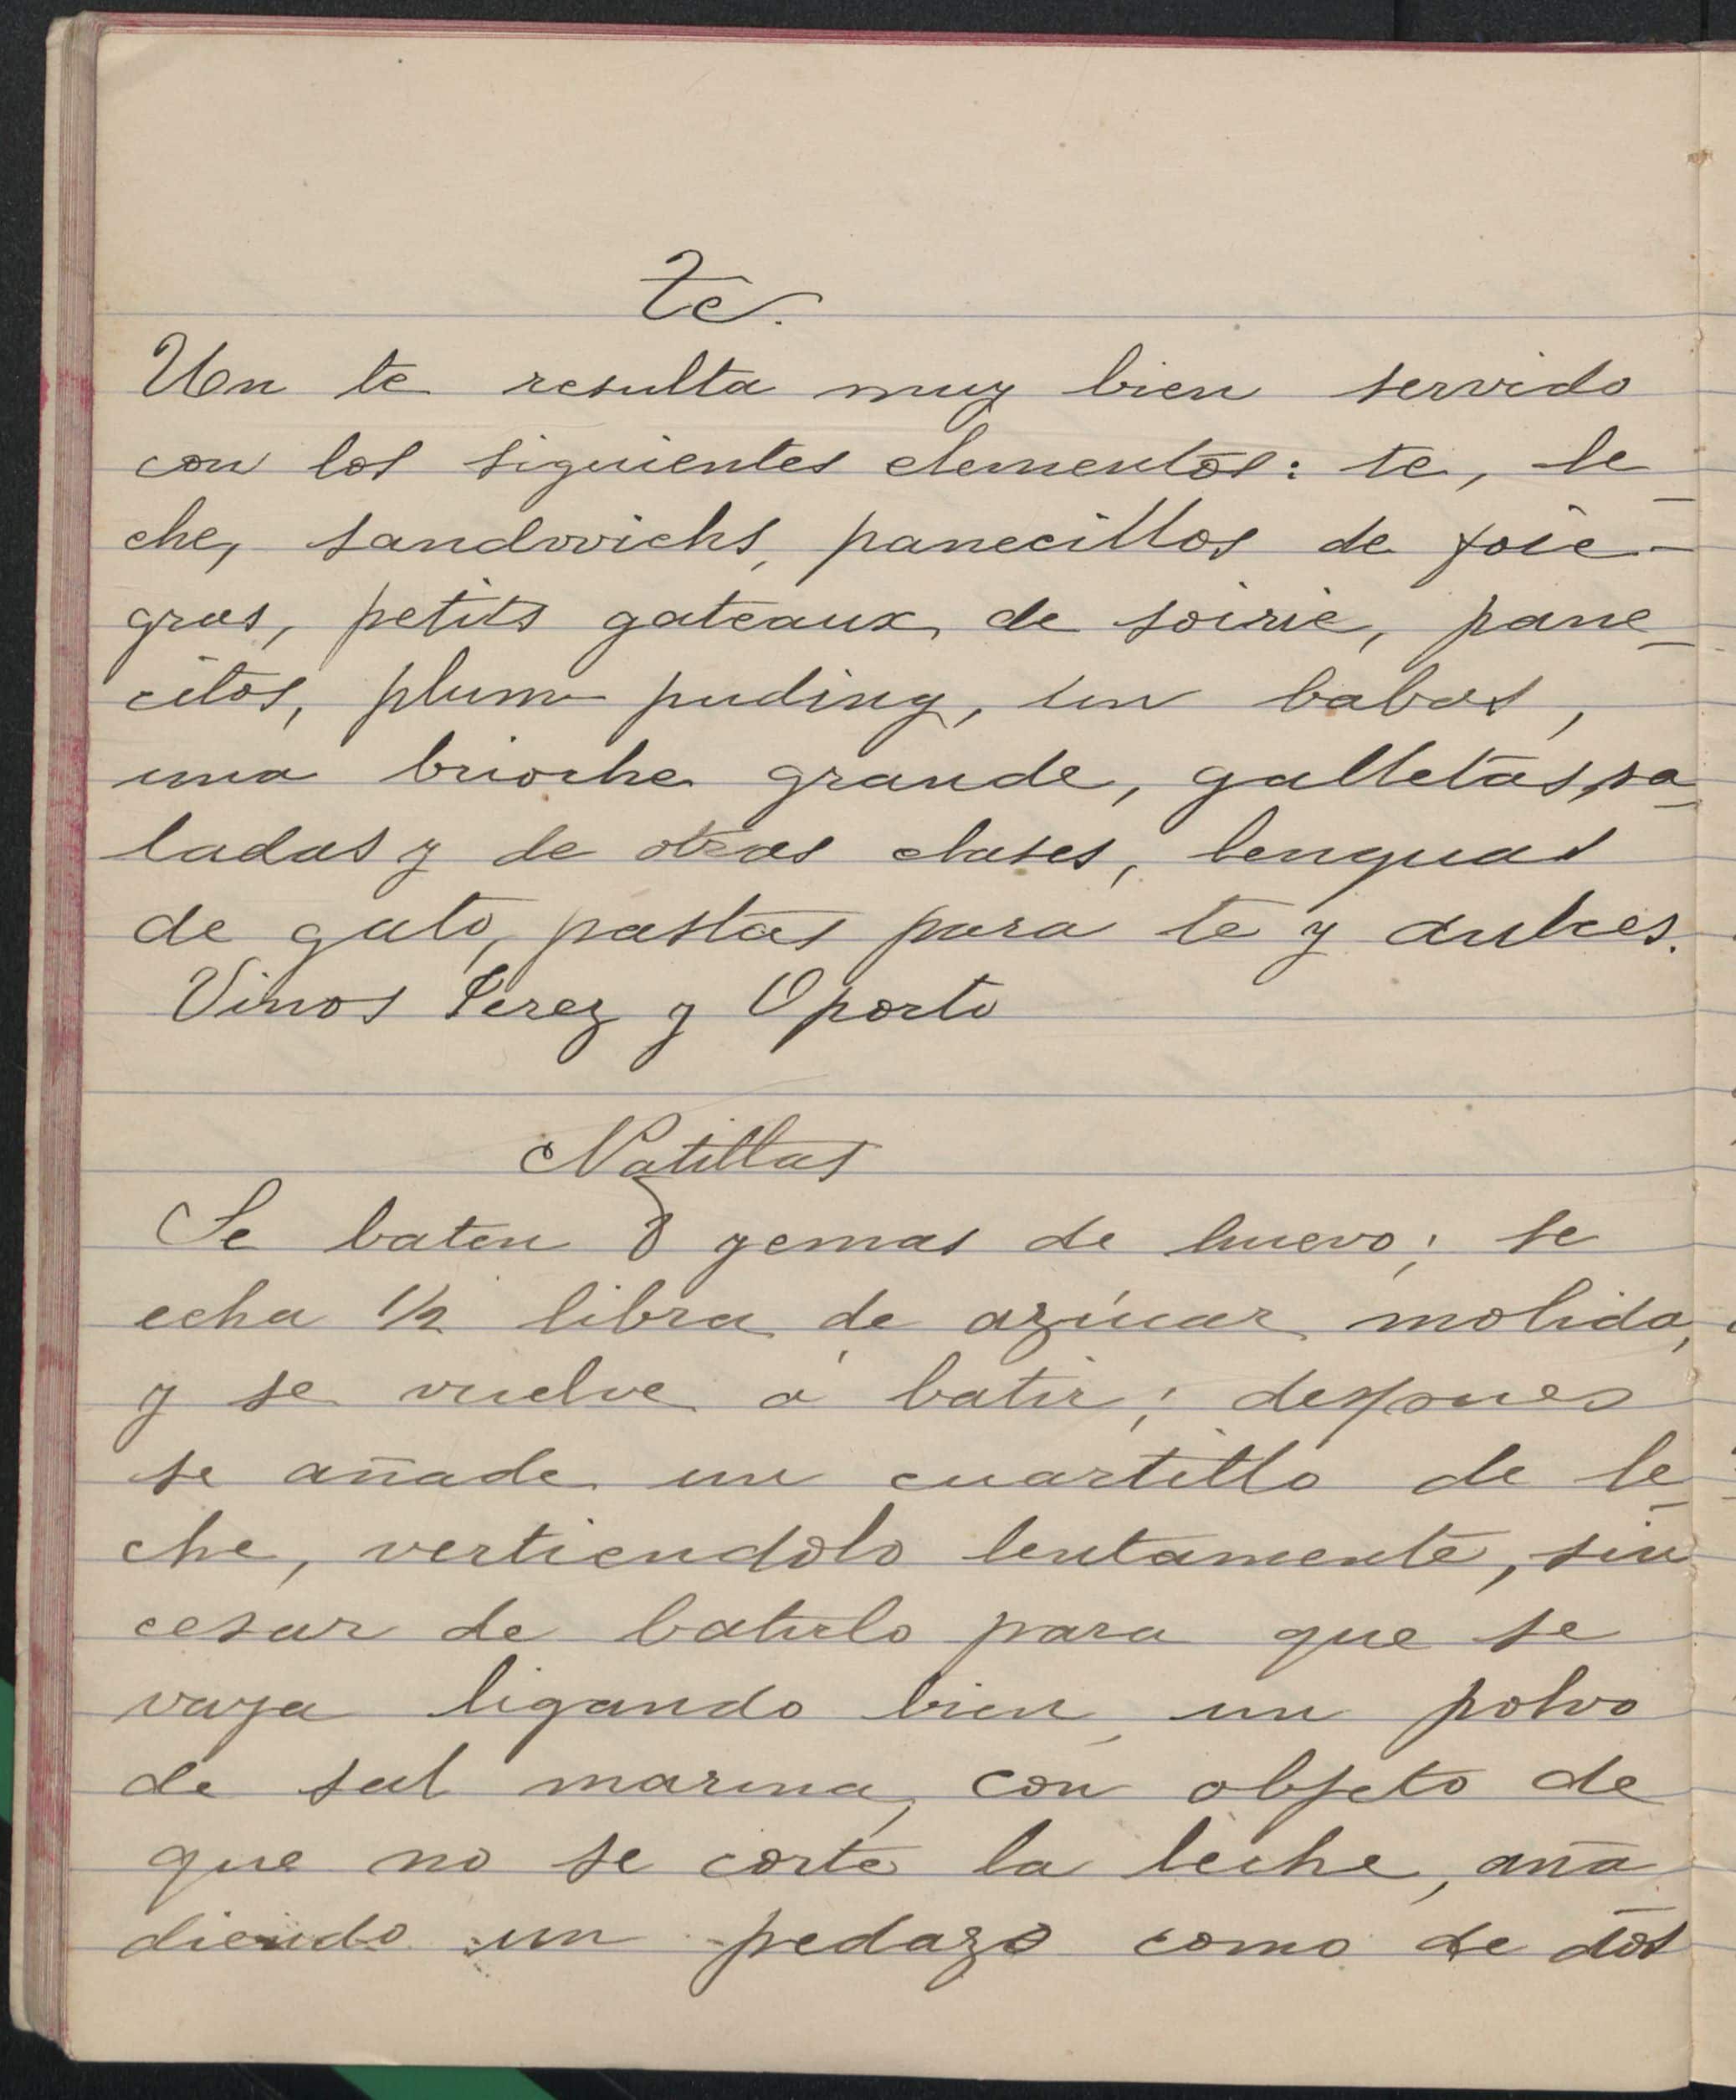 Te.
Un te resulta muy bien servido
con los siguientes elementos: te, le_
che, sandwichs, panecillos de foie-
gras, petits gateaux de soirie, pane_
citos, plum puding, un babas,
una brioche grande, galletas, sa_
ladas y de otras clases, lenguas
de gato, pastas para te y dulces.
Vinos Jerez y Oporto
Natillas
Se baten 8 yemas de huevo; se
echa 1/2 libra de azúcar molida,
y se vuelve á batir; despues
se añade un cuartillo de le_
che, vertiendolo lentamente, sin
cesar de batirlo para que se
vaya ligando bien, un polvo
de sal marina, con objeto de
que no se corte la leche, aña_
diendo un pedazo como de dos